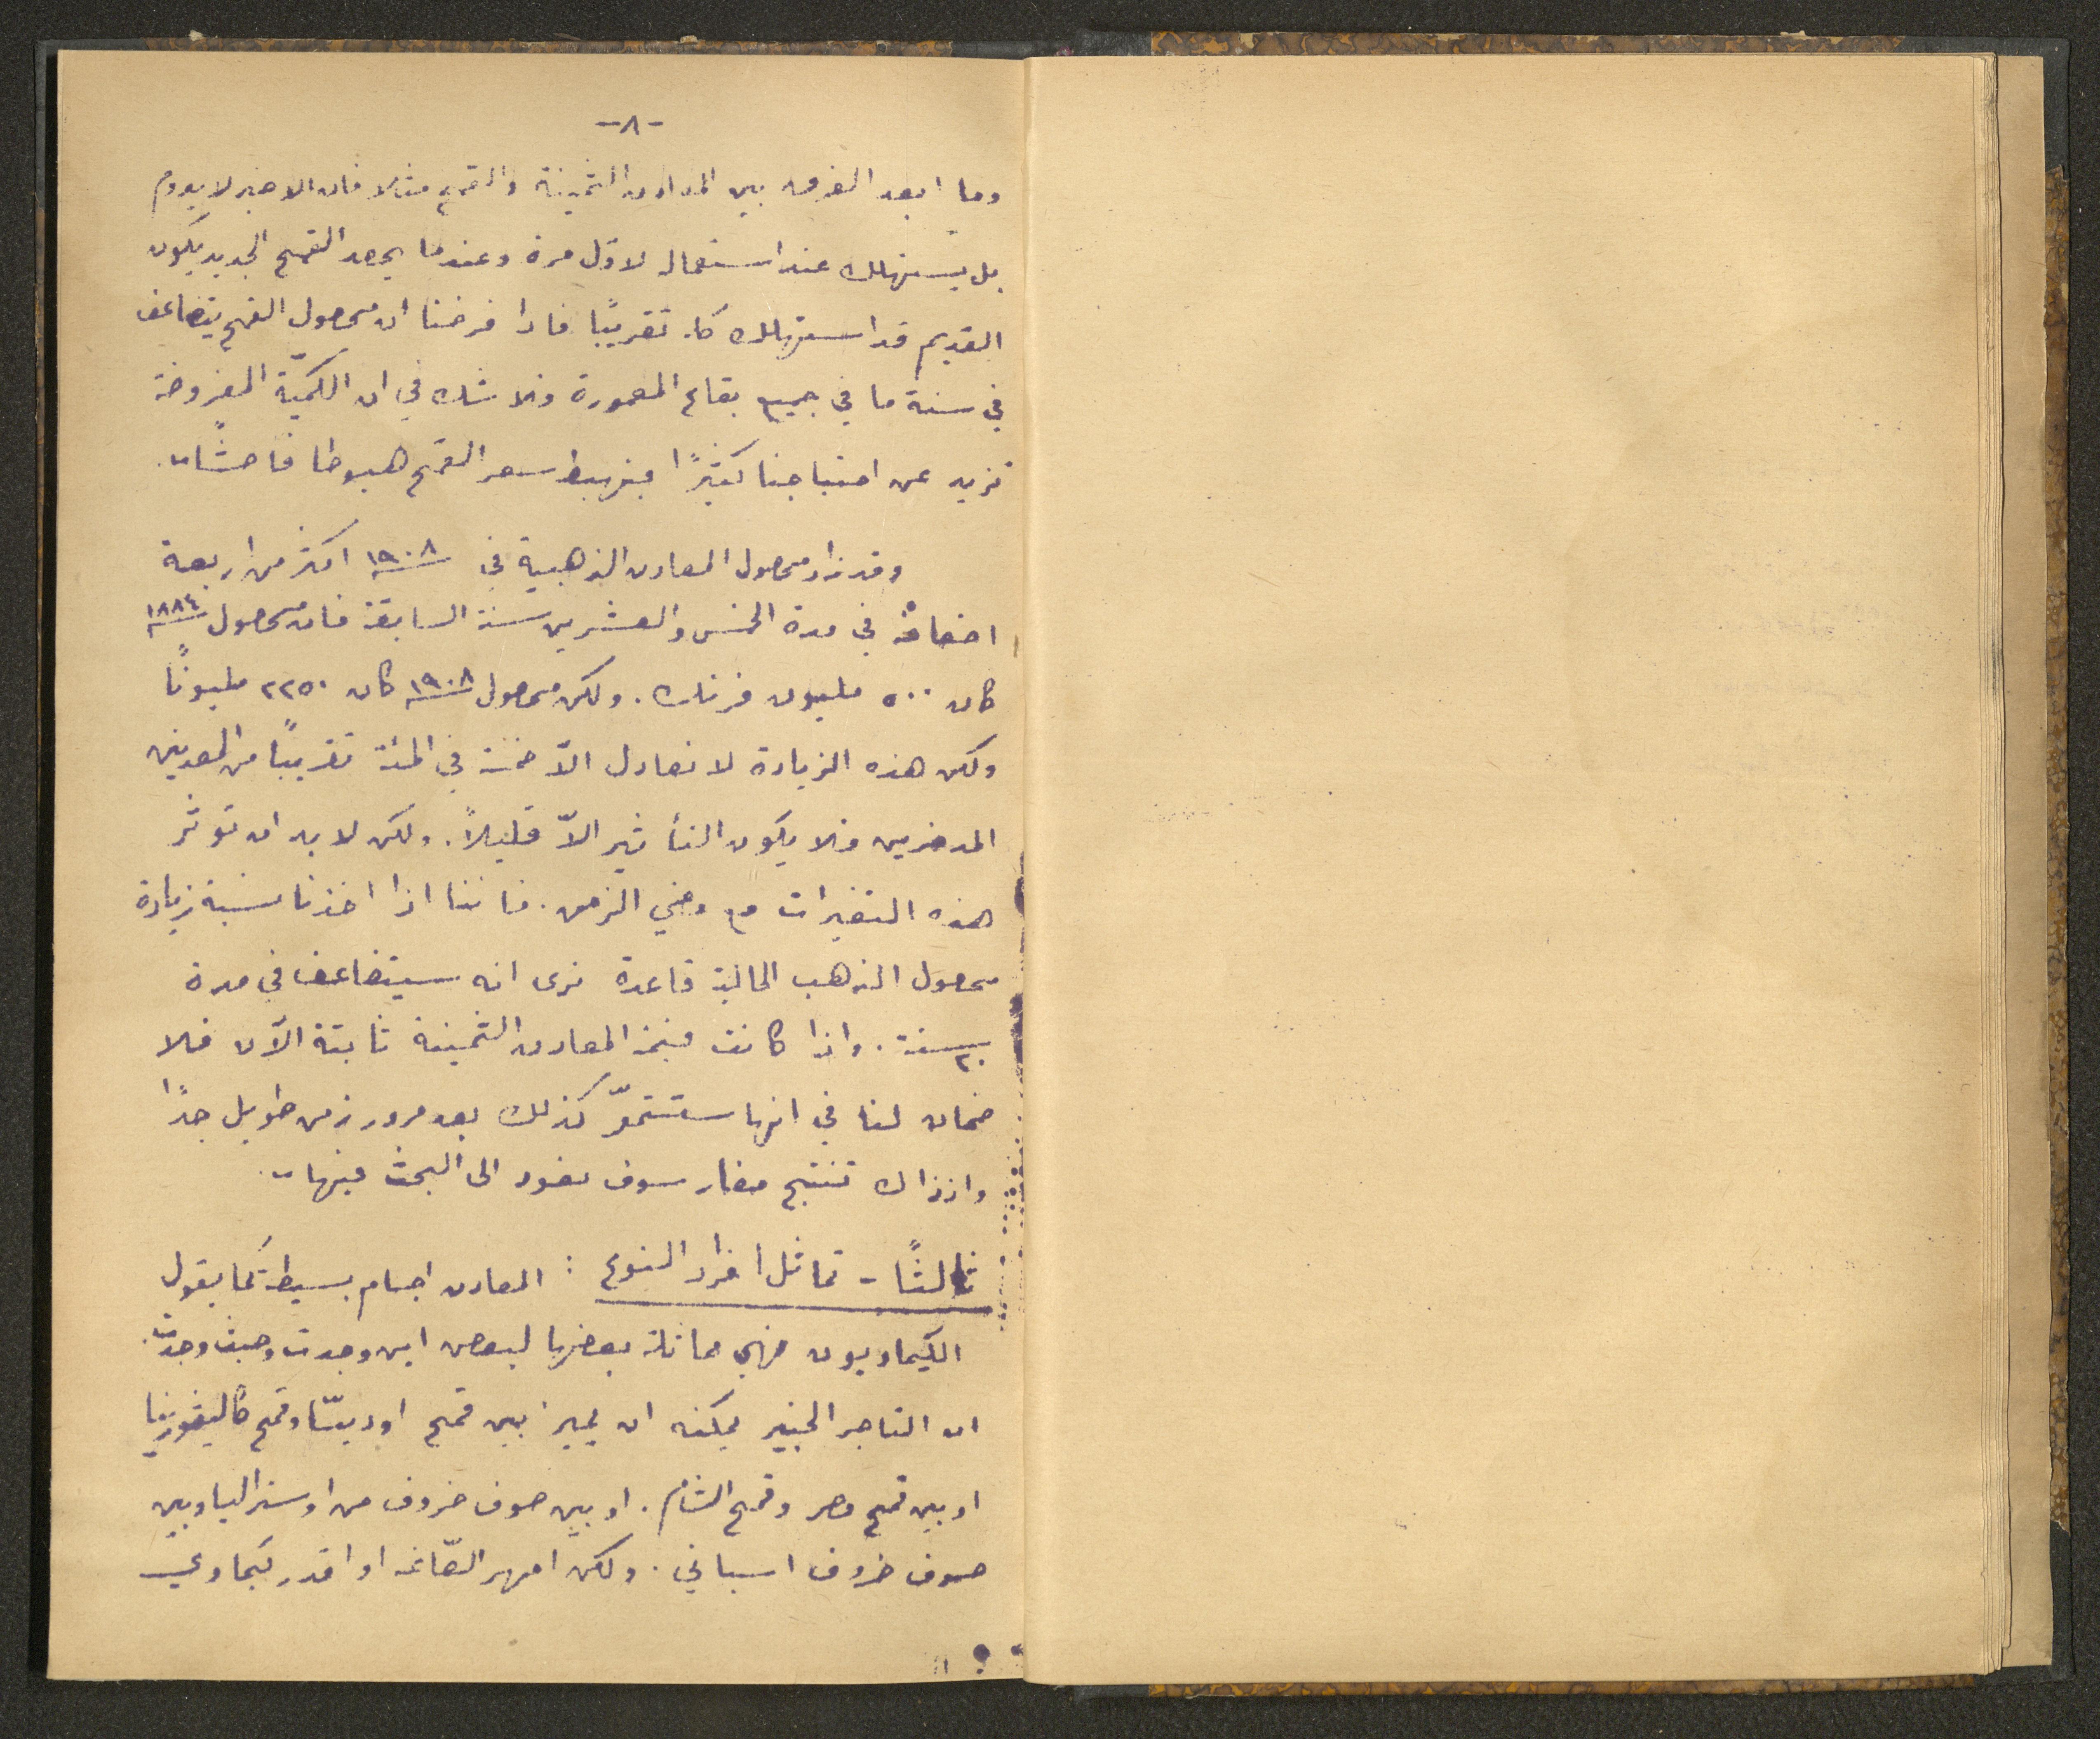 -٨-
وما ابعد الفرق بين المعادن الثمينة والقمح مثلا فان الاخير لا يدوم
بل يستهلك عند استعماله لاول مرة وعندما يحصد القمح الجديد يكون
القديم قد استهلك كله تقريبًا فاذا فرضنا ان محصول القمح يتضاعف
في سنة ما في جميع بقاع المعمورة فلا شك في ان الكميّة المفروضة
تزيد عن احتياجنا كثيرًا فيهبط سعر القمح هبوطا فاحشًا.
وقد زاد محصول المعادن الذهبية في ١٩٠٨ اكثر من اربعة
اضعافه في مدة الخمس والعشرين سنة السابقة فان محصول ١٨٨٤
كان ٥٠٠ مليون فرنك. ولكن محصول ١٩٠٨ كان ٢٢٥٠ مليونًا
ولكن هذه الزيادة لا تعادل الاّ خمسة في المئة تقريبًا من المعدنين
المدخرين فلا يكون التأثير الاّ قليلاً. ولكن لا بد ان تؤثر
هذه التغيرات مع مضي الزمن. فاننا اذا اخذنا نسبة زيادة
محصول الذهب الحالية قاعدة نرى انه سيتضاعف في مدة
٢٠ سنة. واذا كانت قيمة المعادن الثمينة ثابتة الآن فلا
ضمان لنا في انها ستستمرّ كذلك بعد مرور زمن طويل جدًا
واذ ذاك تنتج مضار سوف نعود الى البحث فيها.
ثالثًا - تماثل افراد النوع : المعادن اجسام بسيطة كما يقول
الكيماويون فهي مماثلة بعضها لبعض اين وجدت وحيث وجدت.
ان التاجر الخبير يمكنه ان يميز بين قمح اوديسّا وقمح كاليفورنيا
او بين قمح مصر وقمح الشام. او بين صوف خروف من اوستراليا وبين
صوف خروف اسباني. ولكن امهر الصّاغة او اقدر كيماوي